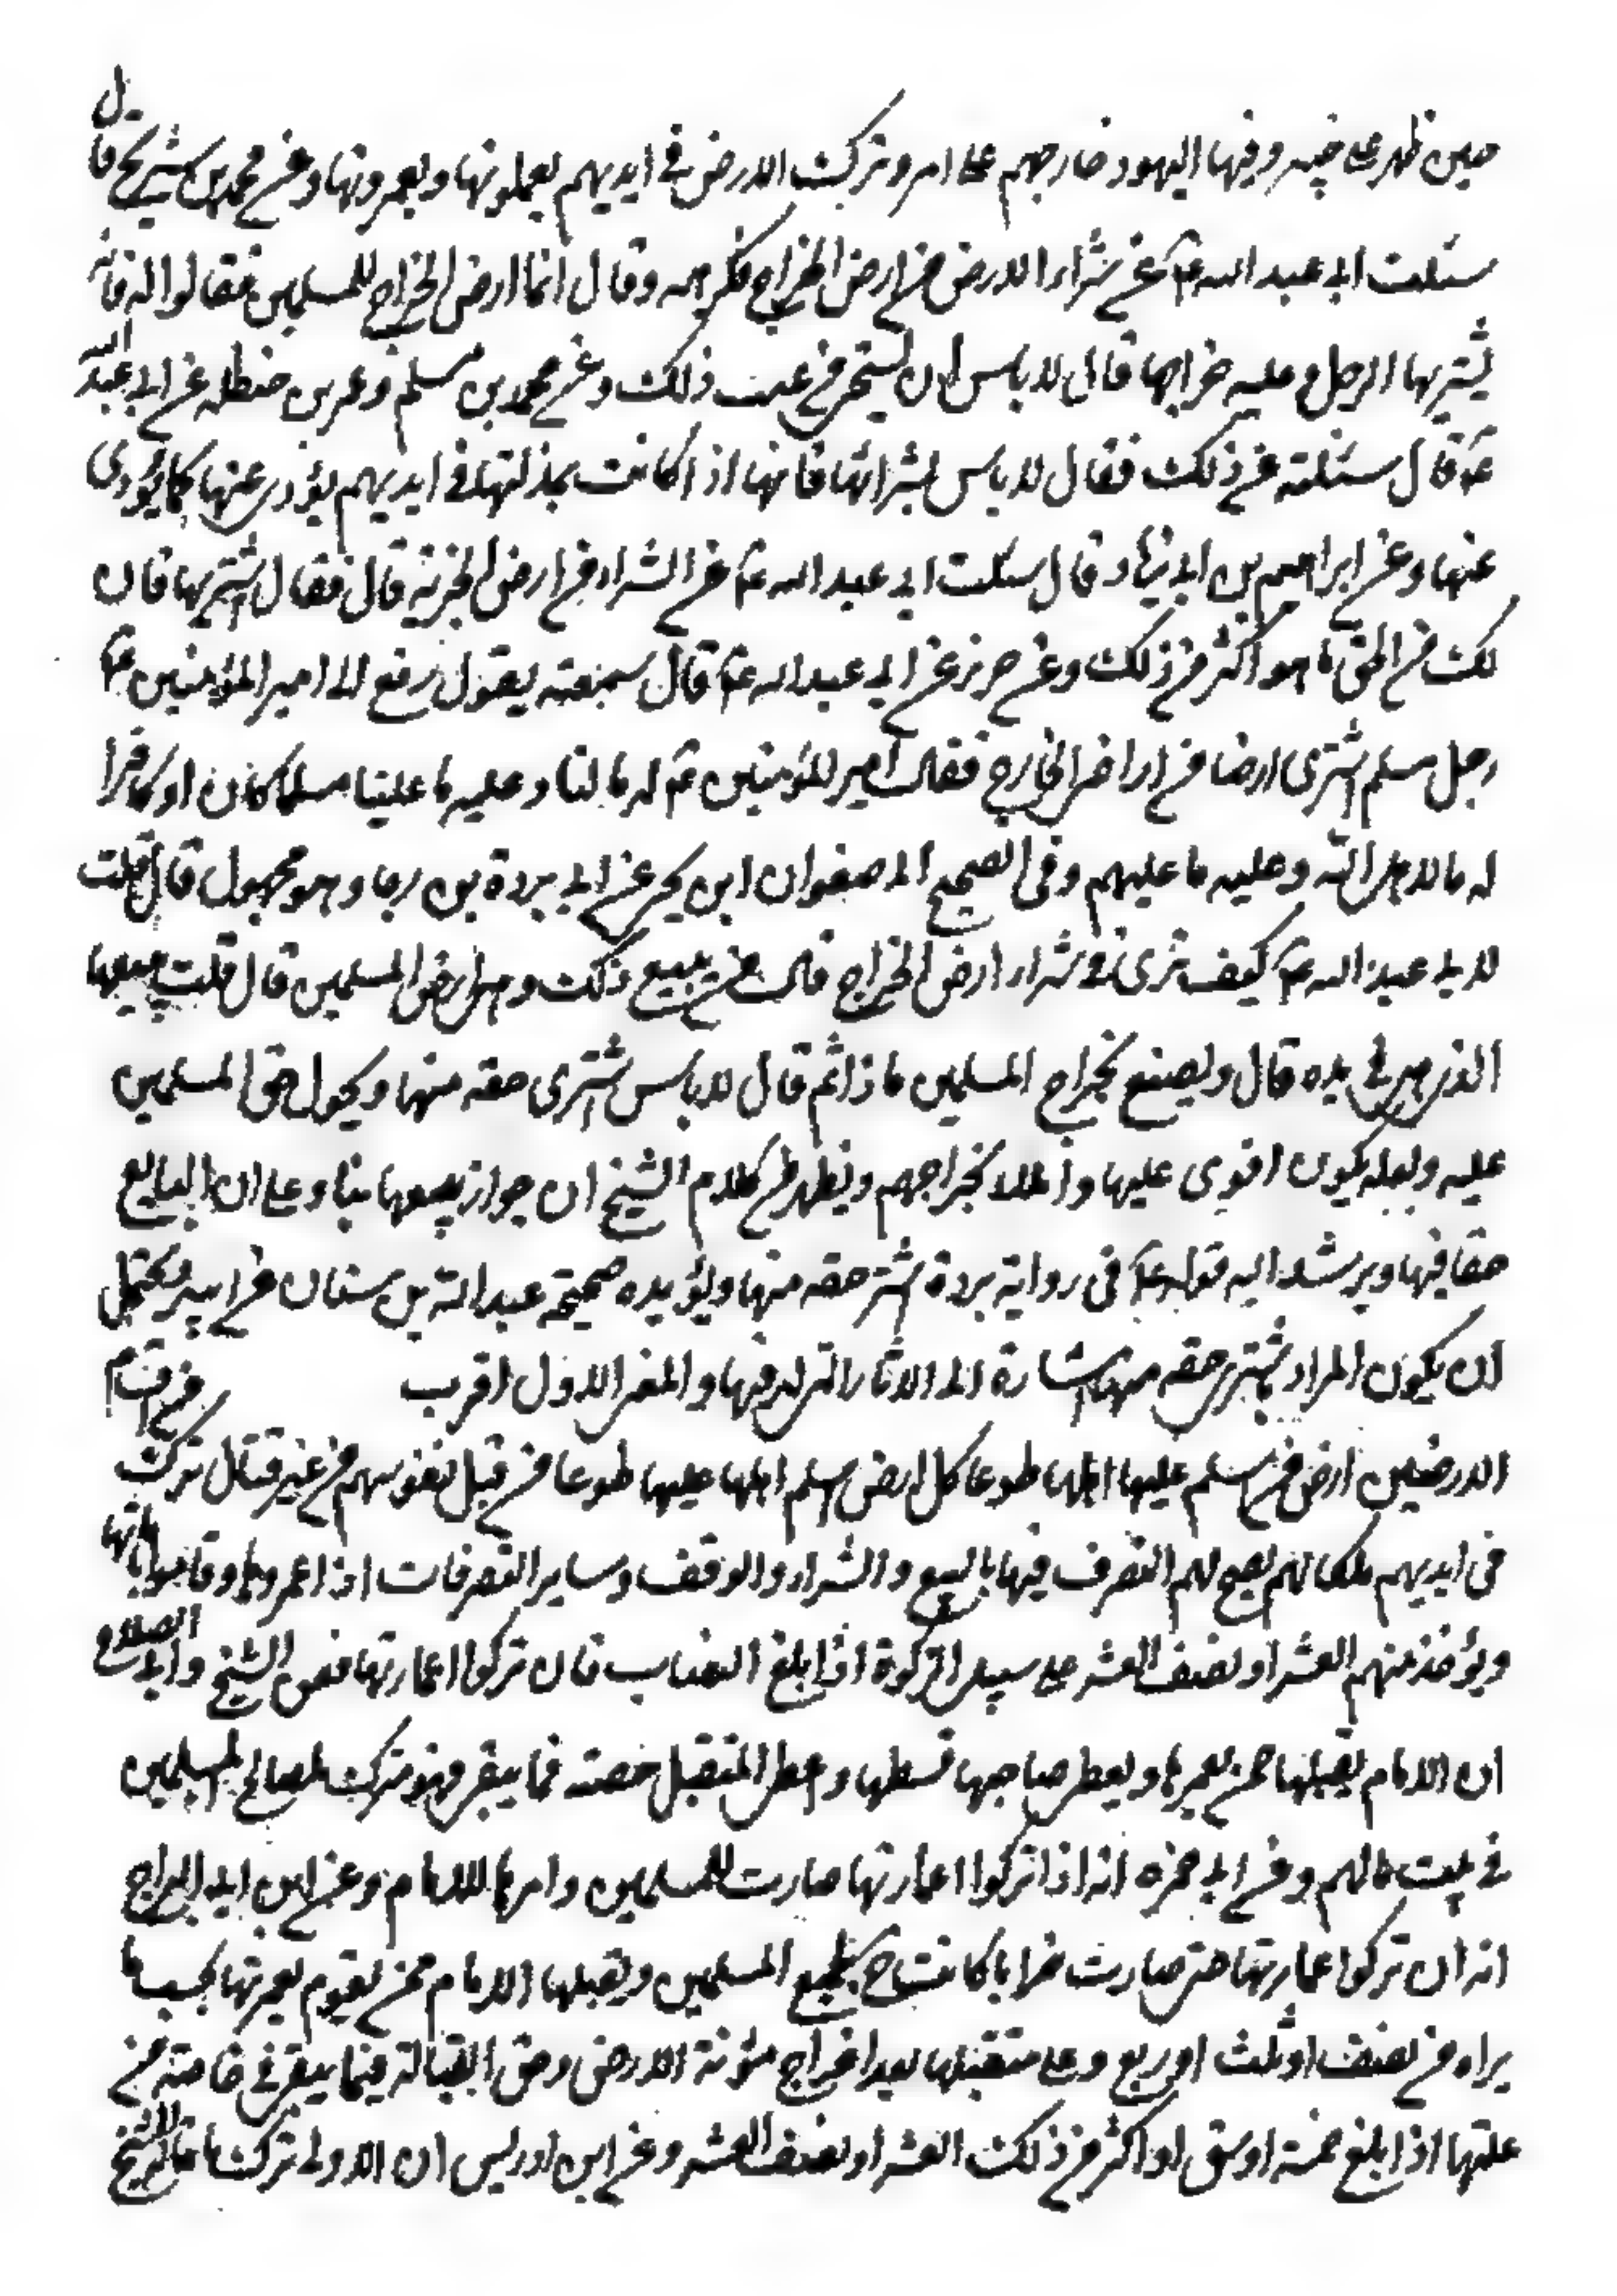 حين ظهر على خيبر وفيها اليهود خارجهم على امر وترك الارض في ايديهم يعملونها ويعمرونها وعن محمد بن شريح قال
سئلت ابا عبد الله عم عن شراء الارض من ارض الخراج فكرهه وقال انما ارض الخراج للمسلمين فقالوا له فانه
يشتريها الرجل وعليه خراجها قال لا باس الا ان يستحي من عيب ذلك وعن محمد بن مسلم وعمر بن حنظلة عن ابي عبد الله
عم قال سئلته عن ذلك فقال لا باس بشرائها فانها اذا كانت بمنزلتها في ايديهم يؤدى عنها كما يؤدى
عنها وعن ابراهيم بن ابي زياد قال سئلت ابي عبد الله عم عن الشراء من ارض الجزية قال فقال اشتريها فان
لك من الحق ما هو اكثر من ذلك وعن حريز عن ابي عبد الله عم قال سمعته يقول رفع الى امير المؤمنين عم
رجل مسلم اشترى ارضا من اراضى الخراج فقال امير المؤمنين عم له ما لنا وعليه ما علينا مسلما كان او كافرا
له ما لاهل الله وعليه ما عليهم وفى الصحيح الى صفوان ابن يحيى عن ابي بردة بن رجا وهو مجهول قال قلت
لابي عبد الله عم كيف ترى في شراء ارض الخراج قال من يبيع ذلك وهي ارض المسلمين قال قلت يبيعها
الذى هى في يده قال ويصنع بخراج المسلمين ماذا ثم قال لا باس اشترى حقه منها ويحول حق المسلمين
عليه ولعله يكون اقوى عليها واملا بخراجهم ويظهر من كلام الشيخ ان جواز بيعها بناء على ان للبايع
حقا فيها ويرشد اليه قوله عم في رواية بردة اشتر حقه منها ويؤيده صحيحة عبد الله بن سنان عن ابيه ويحتمل
ان يكون المراد بشترى حقه منها اشارة الى الاثار التى له فيها والمعنى الاول اقرب من اقسام
الارضين ارض من اسلم عليها اهلها طوعا كل ارض اسلم اهلها عليها طوعا من قبل نفوسهم من غير قتال تركت
فى ايديهم ملكا لهم يصح لهم التصرف فيها بالبيع والشراء والوقف وساير التصرفات اذا عمروها وقاموا بعمارتها
ويؤخذ منهم العشر او نصف العشر على سبيل الزكوة اذا بلغ النصاب فان تركوا عمارتها فعن الشيخ وابي الصلاح
ان الامام يقبلها ممن يعمرها ويعطى صاحبها قسطها واعطى المتقبل حصته فما يبقى فهو متروك لمصالح المسلمين
في بيت مالهم وعن ابي حمزه انه اذا تركوا عمارتها صارت للمسلمين وامرها للامام وعن ابن البراج
انه ان تركوا عمارتها حتى صارت خرابا كانت ح لجميع المسلمين ويقبلها الامام ممن يقوم بعمرتها بحسب ما
يراه من نصف او ثلث او ربع وعلى متقبلها بعد اخراج مؤنة الارض وحق القبالة فيما يبقى في خاصته من
غلتها اذا بلغ خمسة اوسق او اكثر من ذلك العشر او نصف العشر وعن ابن ادريس ان الاولى ترك ما قاله الشيخ